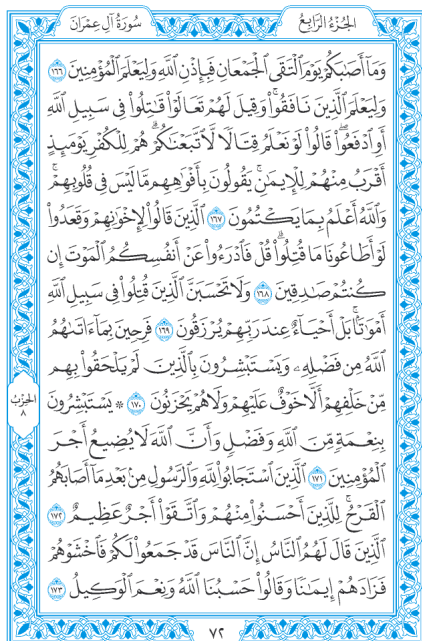 الجُزْءُ الرَّابِعُ
سُورَةُ آلِ عِمْرَانَ
وَمَآ أَصَٰبَكُمْ يَوْمَ ٱلْتَقَى ٱلْجَمْعَانِ فَبِإِذْنِ ٱللَّهِ وَلِيَعْلَمَ ٱلْمُؤْمِنِينَ ١٦٦
وَلِيَعْلَمَ ٱلَّذِينَ نَافَقُوا۟ۚ وَقِيلَ لَهُمْ تَعَالَوْا۟ قَٰتِلُوا۟ فِى سَبِيلِ ٱللَّهِ
أَوِ ٱدْفَعُوا۟ۖ قَالُوا۟ لَوْ نَعْلَمُ قِتَالًا لَّٱتَّبَعْنَٰكُمْۗ هُمْ لِلْكُفْرِ يَوْمَئِذٍ
أَقْرَبُ مِنْهُمْ لِلْإِيمَٰنِۚ يَقُولُونَ بِأَفْوَٰهِهِم مَّا لَيْسَ فِى قُلُوبِهِمْۚ
وَٱللَّهُ أَعْلَمُ بِمَا يَكْتُمُونَ ١٦٧ ٱلَّذِينَ قَالُوا۟ لِإِخْوَٰنِهِمْ وَقَعَدُوا۟
لَوْ أَطَاعُونَا مَا قُتِلُوا۟ۗ قُلْ فَٱدْرَءُوا۟ عَنْ أَنفُسِكُمُ ٱلْمَوْتَ إِن
كُنتُمْ صَٰدِقِينَ ١٦٨ وَلَا تَحْسَبَنَّ ٱلَّذِينَ قُتِلُوا۟ فِى سَبِيلِ ٱللَّهِ
أَمْوَٰتًۢاۚ بَلْ أَحْيَآءٌ عِندَ رَبِّهِمْ يُرْزَقُونَ ١٦٩ فَرِحِينَ بِمَآ ءَاتَىٰهُمُ
ٱللَّهُ مِن فَضْلِهِۦ وَيَسْتَبْشِرُونَ بِٱلَّذِينَ لَمْ يَلْحَقُوا۟ بِهِم
مِّنْ خَلْفِهِمْ أَلَّا خَوْفٌ عَلَيْهِمْ وَلَا هُمْ يَحْزَنُونَ ١٧٠ ۞ يَسْتَبْشِرُونَ
بِنِعْمَةٍ مِّنَ ٱللَّهِ وَفَضْلٍ وَأَنَّ ٱللَّهَ لَا يُضِيعُ أَجْرَ
ٱلْمُؤْمِنِينَ ١٧١ ٱلَّذِينَ ٱسْتَجَابُوا۟ لِلَّهِ وَٱلرَّسُولِ مِنۢ بَعْدِ مَآ أَصَابَهُمُ
ٱلْقَرْحُۚ لِلَّذِينَ أَحْسَنُوا۟ مِنْهُمْ وَٱتَّقَوْا۟ أَجْرٌ عَظِيمٌ ١٧٢
ٱلَّذِينَ قَالَ لَهُمُ ٱلنَّاسُ إِنَّ ٱلنَّاسَ قَدْ جَمَعُوا۟ لَكُمْ فَٱخْشَوْهُمْ
فَزَادَهُمْ إِيمَٰنًا وَقَالُوا۟ حَسْبُنَا ٱللَّهُ وَنِعْمَ ٱلْوَكِيلُ ١٧٣
الحِزْبُ
٨
٧٢